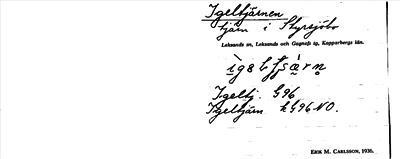 Igeltjärnen
tjärn i Styrsjöbo
Leksands sn, Leksands och Gagnefs tg, Kopparbergs län.
Igeltj. G96
Igeltjärn k G96 NO.
ERIK M. CARLSSON, 1936.